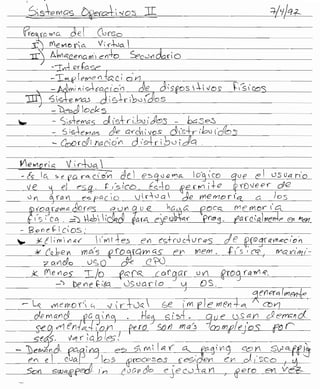 Sistemas Operativos II 7/4/92
Programa del Curso
I) Memoria Virtual
II) Almacenamiento Secundario
- Interfase
- Implementacion
- Administración de dispositivos físicos
III) Sistemas distribuidos
- Deadlocks
- Sistemas distribuidos - bases
- Sistemas de archivos distribuidos
- Coordinación distribuida
Memoria Virtual
- Es la separación del esquema logico que el usuario
ve y el esq. físico. Esto permite proveer de
un gran espacio virtual de memoria a los
programadores aunque haya poca memoria
física => Habilidad para ejecutar prog. parcialmente en mem.
- Beneficios:
* Eliminar limites en estructuras de programación
* Caben más programas en mem. física, maximi-
zando uso de CPU
* Menos I/O para cargar un programa.
-> beneficia usuario y OS.
- La memoria virtual se implementa generalmente con
demand paging. Hay sist. que usan demand
segmentation, pero son más complejos por
segs. variables!
- Demand paging es similar a paging con swapping
en el cual los procesos residen en disco, y
son swapped in cuando ejecutan, pero en vez